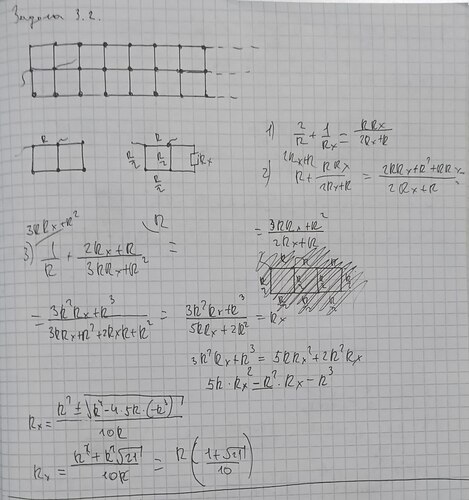 Задача 3.2.
R
R
R/2 R/2 Rx
R/2
1) 2/R + 1/Rx = RRx/(2Rx+R)
2Rx+R
2) R + RRx/(2Rx+R) = (2RRx+R²+RRx)/(2Rx+R)
3RRx+R² R = (3RRx+R²)/(2Rx+R)
3) 1/R + (2Rx+R)/(3RRx+R²) =
= (3R²Rx+R³)/(3RRx+R²+2RxR+R²) = (3R²Rx+R³)/(5RRx+2R²) = Rx
3R²Rx+R³ = 5RRx²+2R²Rx
5R·Rx²-R²·Rx-R³
Rx = (R² ± √(R⁴-4·5R·(-R³)))/10R
Rx = (R²+R²√21)/10R = R((1+√21)/10)